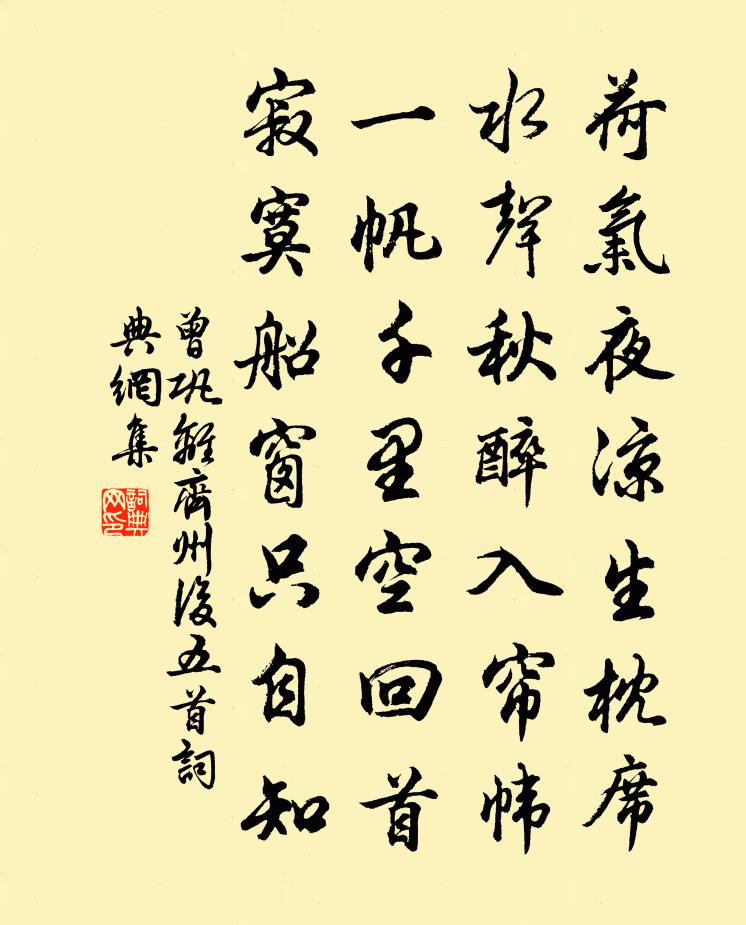 荷氣夜涼生枕席
水聲秋醉入帘幃
一帆千里空回首
寂寞船窗只自知
曾巩離齊州後五首詞
典網集
詞典网印